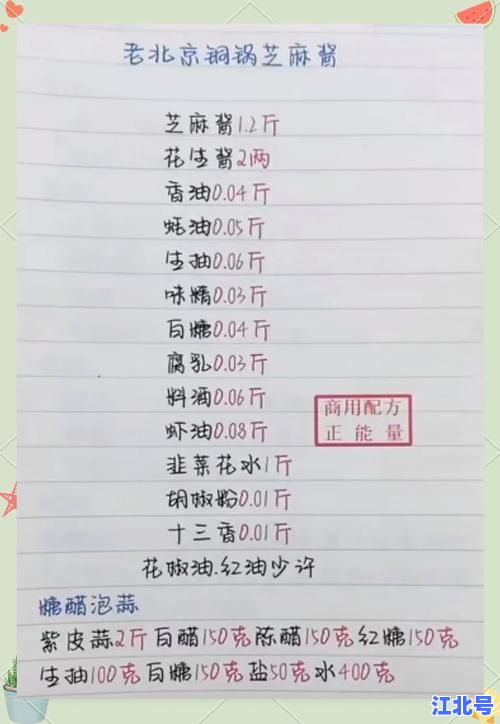 老北京铜锅芝麻酱
芝麻酱1.2斤
花生酱2两
香油0.04斤
蚝油0.05斤
生抽0.06斤
味精0.03斤
白糖0.04斤
腐乳0.03斤
料酒0.06斤
虾油0.08斤
韭菜花水1斤
胡椒粉0.01斤
十三香0.01斤
花椒油.红油少许
商用配方
正能量
糖醋泡蒜
紫皮蒜2斤白醋150克陈醋150克红糖150克
生抽100克白糖150克盐50克水400克
江北号